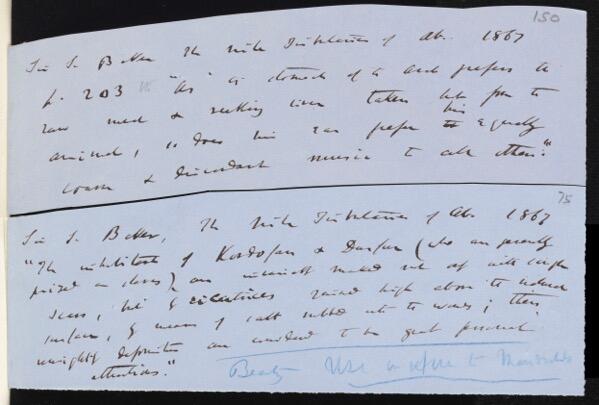 150
Sir S. Baker The Nile Tributaries of Ab. 1867
p. 203 "As" as stomach of a arab prefers the
raw meat & reeking liver taken hot from the
animal, so does his ear prefer his equally
coarse & discordant music to all others."
75
Sir S. Baker, The Nile Tributaries of Ab. 1867
"The inhabitants of Kordofan & Darfur (who are generally
prized as slaves) are invariably marked with
scars, like cicatrices raised high above the
surface, by means of salt rubbed into the wounds; these
unsightly deformities are considered to be great personal
attractions."
Beauty Use or refer to